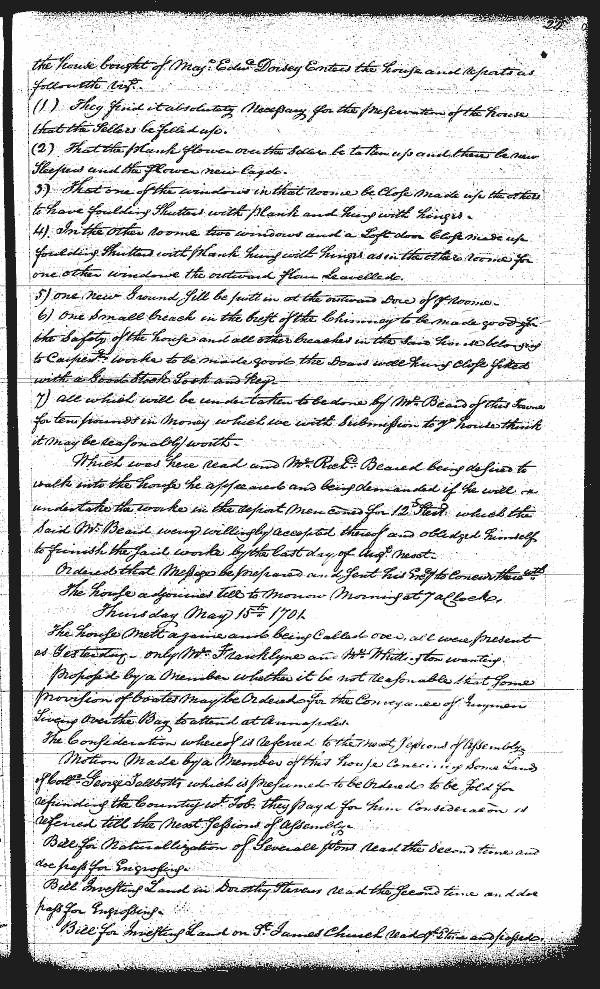 22
the house bought of Majr. Edwd. Dorsey Enters the house and reports as
followeth vizt.
(1) They find it absolutely Necessary for the preservation of the house
that the Sellers be filled up.
(2) That the plank flower over the Seller be taken up and there be new
Sleepers and the flower new layd.
3) That one of the windows in that roome be Close made up the others
to have foulding Shutters with plank and hung with hinges.
4) In the other roome two windows and a Loft door Close made up
foulding Shutters with plank hung with hinges as in the other roome for
one other windowe the outward flour Leavelled.
5) one new Ground Sill be putt in at the outward Dore of ye roome.
6) one Small breach in the brest of the Chimney to be made good for
the Safety of the house and all other breaches in the Said house belonging
to Carpentrs. worke to be made good the Doors well hung Close fitted
with a Good Stock Lock and Key.
7) all which will be undertaken to be done by Mr. Beard of this Towne
for ten pounds in money which we with Submission to ye house think
it may be reasonably worth.
Which was here read and Mr. Richd. Beard being desired to
walk into the house he appeared and being demanded if he will
undertake the worke in the report menconed for 12 which the
Said Mr. Beard very willingly accepted thereof and obliedged himself
to finnish the Said worke by the last day of Augt. next.
Ordered that Message be prepared and Sent his Exy to Concur therewith
The house adjournes till to Morrow Morning at 7 a Clock.
Thursday May 15th 1701
The house mett againe and being Called over, all were present
as Yesterday only Mr. Francklyne and Mr. Whittington wanting.
Proposed by a Member whether it be not reasonable that Some
provision of boates may be Ordered for the Conveyance of Jurymen
Living over the Bay to attend at Annapolis.
The Consideration whereof is referred to the next Sessions of Assembly
Motion Made by a Member of this house Concerning Some Land
of Collo. George Talbotts which is presumed to be Ordered to be Sold for
refunding the Country wt. Tob: they payd for him Consideracon is
referred till the Next Sessions of Assembly
Bill for Naturallization of Severall psons read the Second time and
doe pass for Engrossing.
Bill Investing Land in Dorothy Stevens read the Second time and doe
pass for Engrossing.
Bill for Investing Land on St. James Church read ye time and passed.